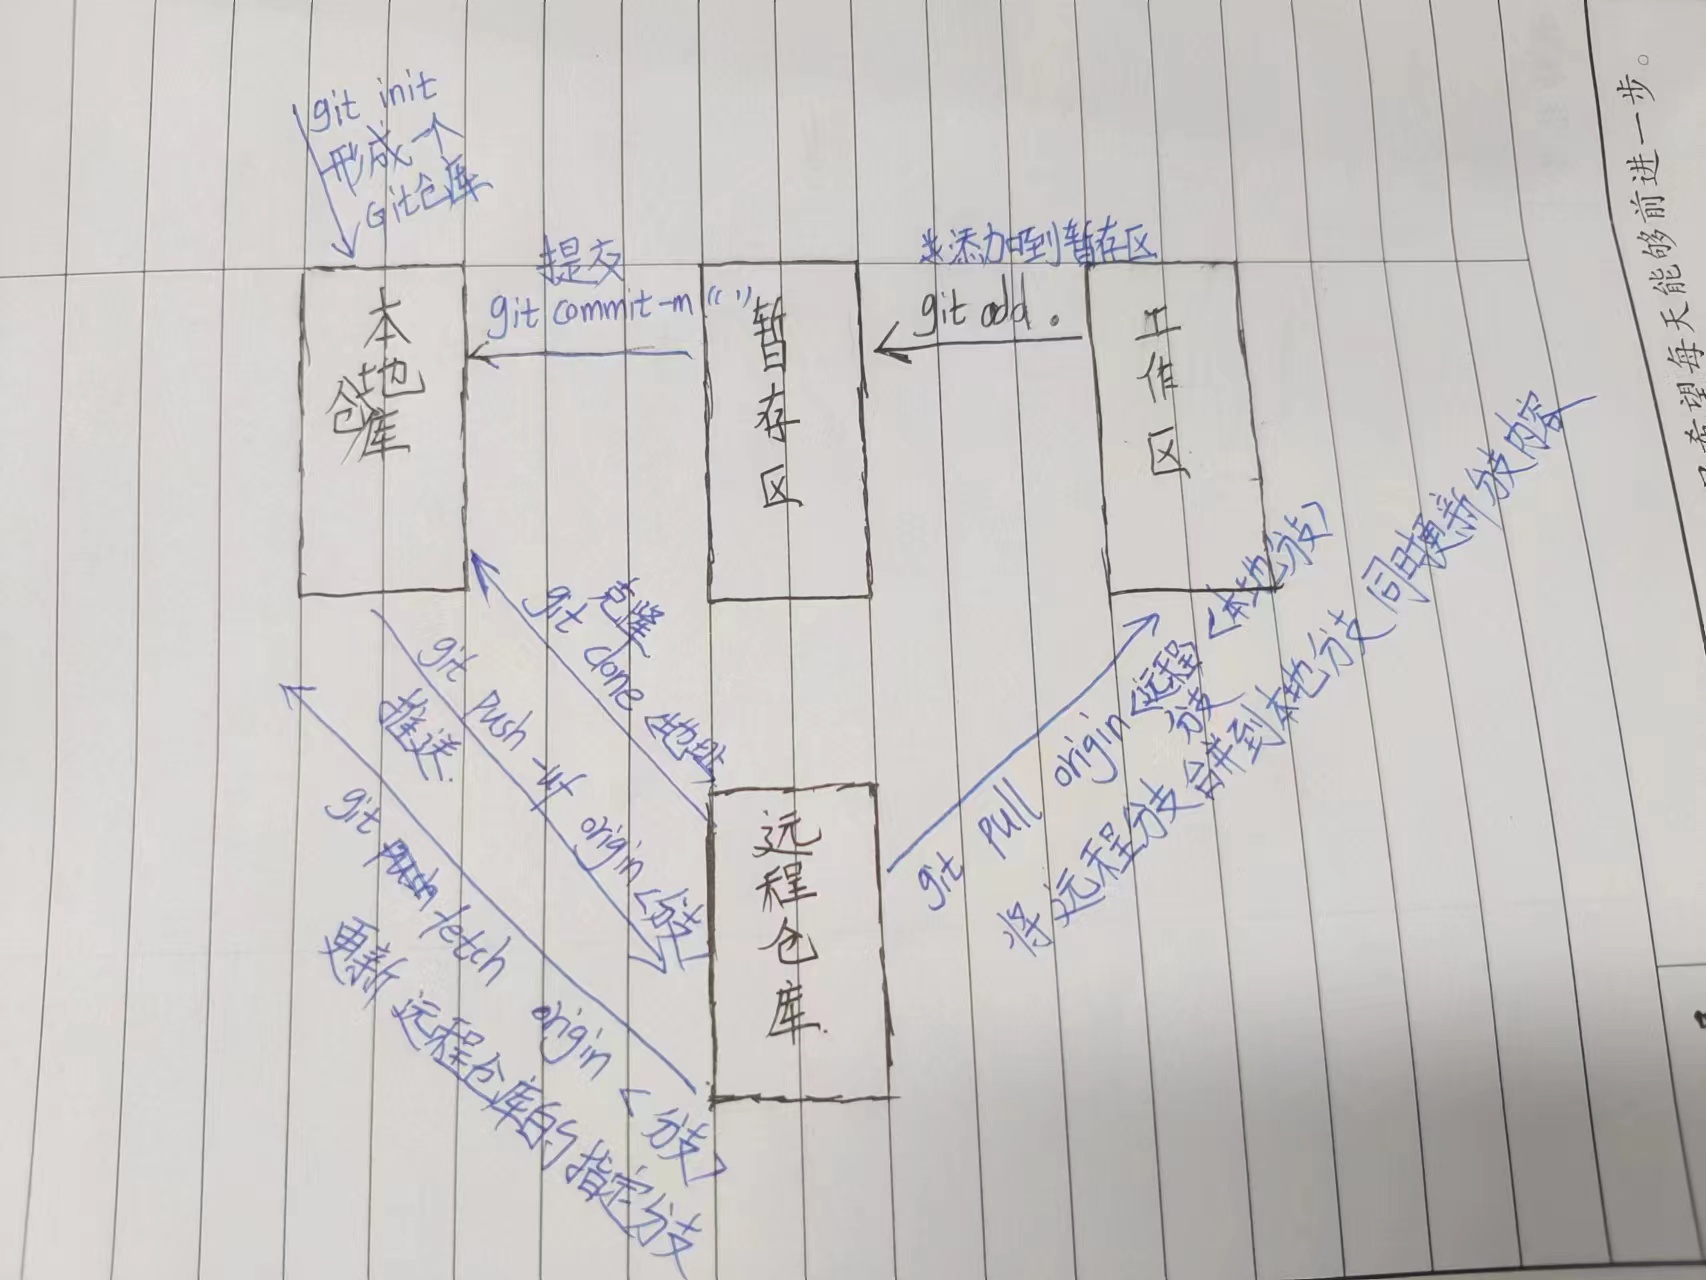 git init
形成一个
Git仓库
提交
git commit -m “”
添加到暂存区
git add .
本地
仓库
暂存区
工作区
克隆
git clone <地址
git push -uf origin <分支
推送
git fetch origin <分支>
更新远程仓库的指定分支
远程仓库
git pull origin <远程
分支
<本地分支>
将远程分支合并到本地分支同时更新分支内容
希望每天能够前进一步。